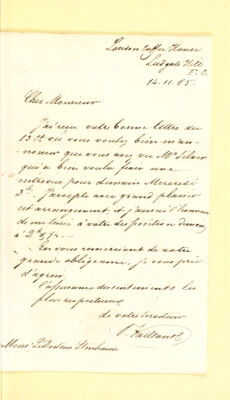 London Coffee House
Ludgate Hill
E.C.
14.11.65.
Cher Monsieur
J'ai reçu votre bonne lettre du
13 ct où vous voulez bien m'an-
noncer que vous avez vu Mr Silver
qui a bien voulu fixer une
entrevue pour demain Mercredi
J'accepte avec grand plaisir
cet arrangement, et j'aurai l'honneur
de me tenir à votre disposition demain
à 2h
En vous remerciant de votre
grande obligeance, je vous prie
d'agréer
l'assurance des sentiments les
plus respectueux
de votre serviteur
Vaillant
Monsr Le Docteur Stenhouse